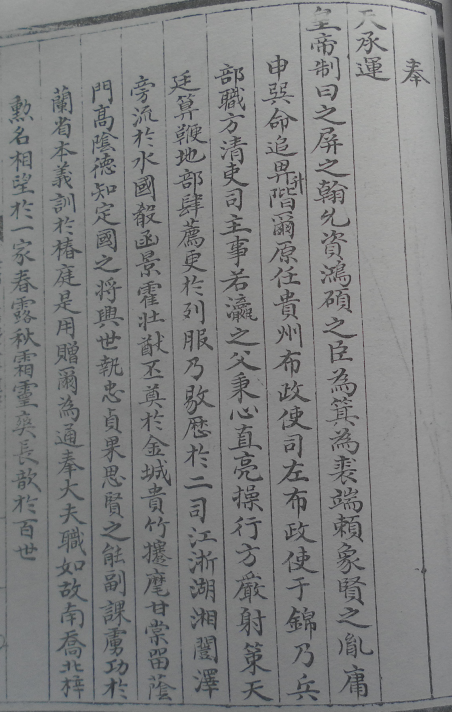 奉
天承運
皇帝制曰之屏之翰允資鴻碩之臣為箕為裘端賴象賢之胤庸
申巽命追畀升階爾原任貴州布政使司左布政使于錦乃兵
部職方清吏司主事若瀛之父秉心直亮操行方嚴射策天
廷算鞭地部肆薦更於列服乃敭歷於二司江浙湖湘闓澤
旁流於水國殽函景霍壯猷丕奠於金城貴竹攘麾甘棠留蔭
門高陰德知定國之將興世執忠貞果思賢之能副課虜功於
蘭省本義訓於椿庭是用贈爾為通奉大夫職如故南喬北梓
勲名相望於一家春露秋霜靈爽長歆於百世